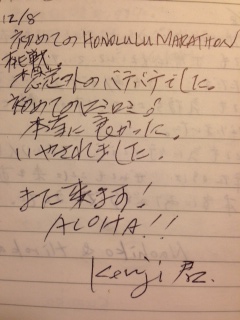 12/8
初めてのHONOLULU MARATHON
挑戦。
想定外のバテバテでした。
初めてのロミロミ!
本当に良かった。
いやされました。
また来ます!
ALOHA!!
Kenji